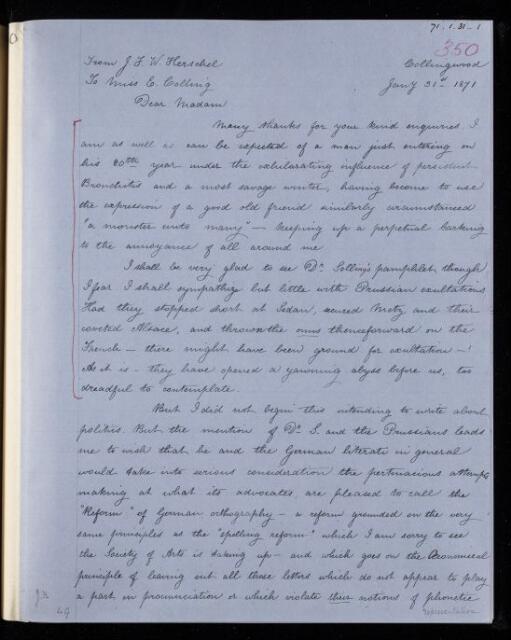 71-1-31-1
350
From J. F. W. Herschel
Collingwood
To Miss E. Colling
Jany 31st 1871
Dear Madam
Many thanks for your kind enquiries. I
am as well as can be expected of a man just entering on
his 80th year under the exhilarating influence of persistent
Bronchitis and a most savage winter, having become to use
the expression of a good old friend similarly circumstanced
"a monster unto many" — keeping up a perpetual barking
to the annoyance of all around me
I shall be very glad to see Dr. Solling's pamphlet, though
I fear I shall sympathy but little with Prussian exultations
Had they stopped short at Sedan, secured Metz and their
coveted Alsace, and thrown the onus thenceforward on the
French — there might have been ground for exultation —!
As it is - they have opened a yawning abyss before us, too
dreadful to contemplate.
But I did not begin this intending to write about
politics. But the mention of Dr. S. and the Prussians leads
me to wish that he and the German literati in general
would take into serious consideration the pertinacious attempts
making at what its advocates, are pleased to call the
"Reform" of German orthography — a reform grounded on the very
same principles as the "spelling reform" which I am sorry to see
the Society of Arts is taking up — and which goes on the Œconomical
principle of leaving out all those letters which do not appear to play
a part in pronunciation or which violate their notions of phonetic
representation